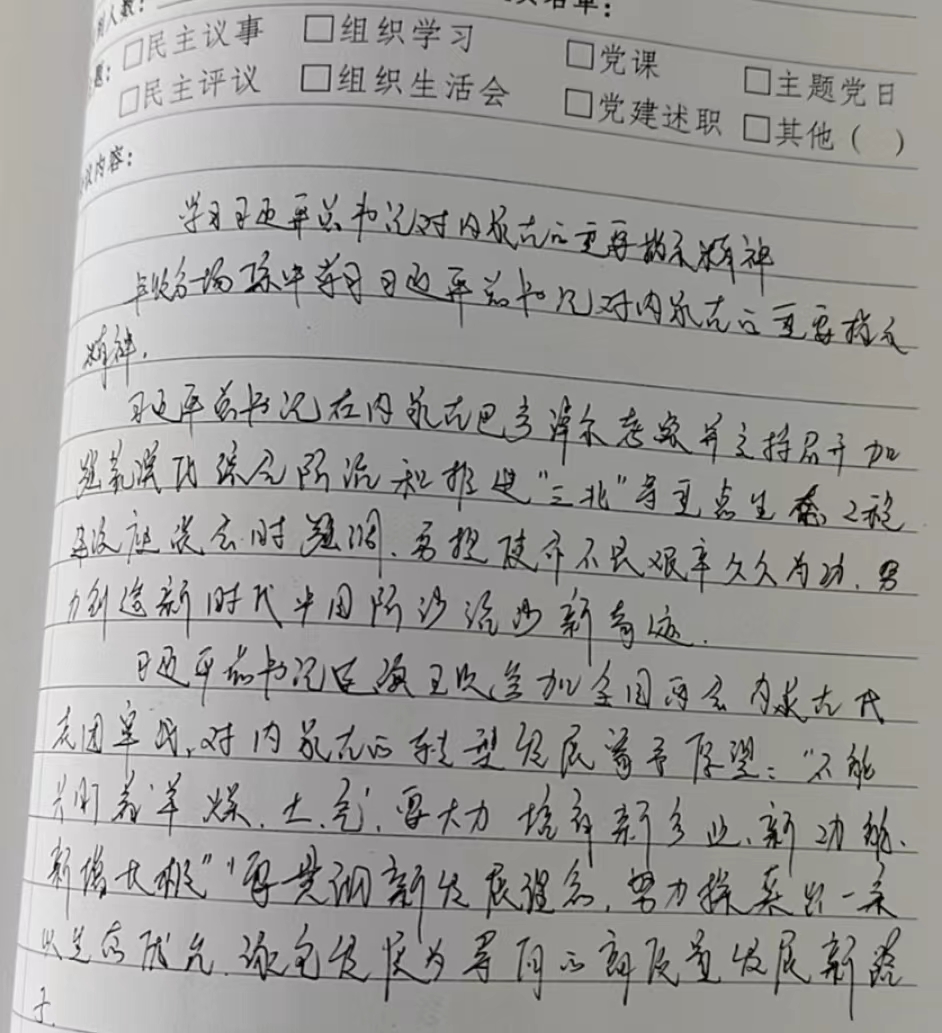 人数: 名单:
题: □民主议事 □组织学习 □党课 □主题党日
□民主评议 □组织生活会 □党建述职 □其他( )
议内容:
学习习近平总书记对内蒙古的重要指示精神
集中学习习近平总书记对内蒙古的重要指示
精神.
习近平总书记在内蒙古巴彦淖尔考察并主持召开加
强荒漠化综合防治和推进“三北”等重点生态工程
建设座谈会时强调,勇担使命不畏艰辛久久为功,努
力创造新时代中国防沙治沙新奇迹.
习近平总书记连续五次参加全国两会内蒙古代
表团审议,对内蒙古的转型发展寄予厚望:“不能
只盯着‘羊.煤.土.气’,要大力培育新产业、新动能、
新增长极”“要贯彻新发展理念,努力探索出一条
以生态优先、绿色发展为导向的高质量发展新路
子.